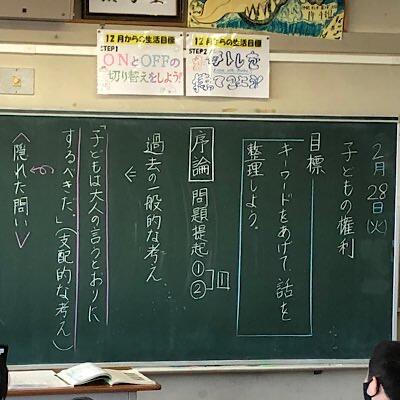 12月からの生活目標
STEP1
ONとOFFの
切り替えをしよう！
12月からの生活目標
STEP2
2月28日(火)
子どもの権利
目標
キーワードをあげて、話を
整理しよう。
序論 問題提起①②
過去の一般的な考え
←
「子どもは大人の言うとおりに
するべきだ。」(支配的な考え)
<隠れた問い>